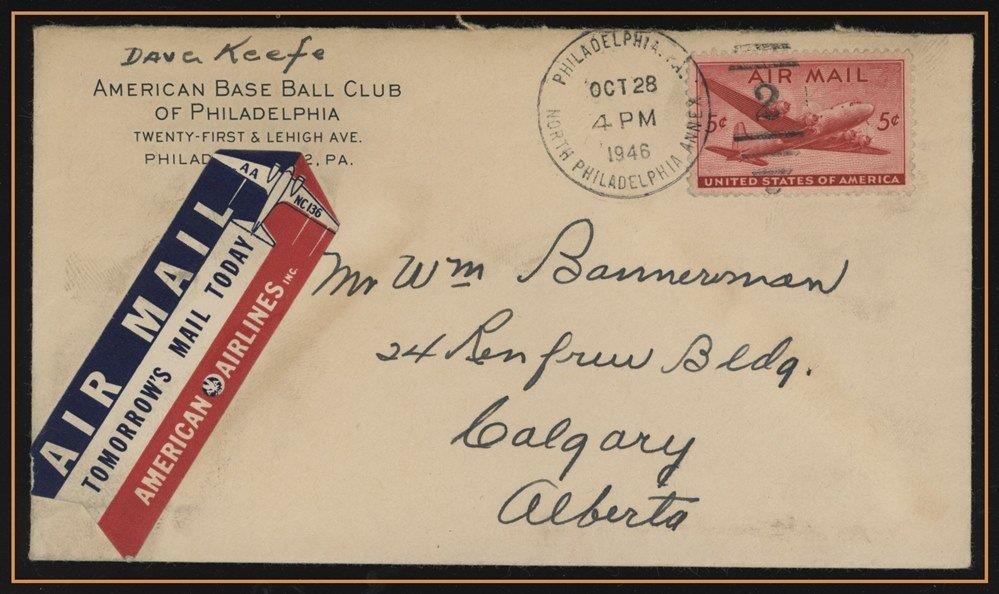 Dave Keefe
AMERICAN BASE BALL CLUB
OF PHILADELPHIA
TWENTY-FIRST & LEHIGH AVE.
PHILAD 2, PA.
PHILADELPHIA, PA.
NORTH PHILADELPHIA ANNEX
OCT 28
4 PM
1946
2
AIR MAIL
5¢ 5¢
UNITED STATES OF AMERICA
AA
NC136
AIR MAIL
TOMORROW'S MAIL TODAY
AMERICAN AIRLINES INC.
Mr Wm Bannerman
24 Renfrew Bldg.
Calgary
Alberta